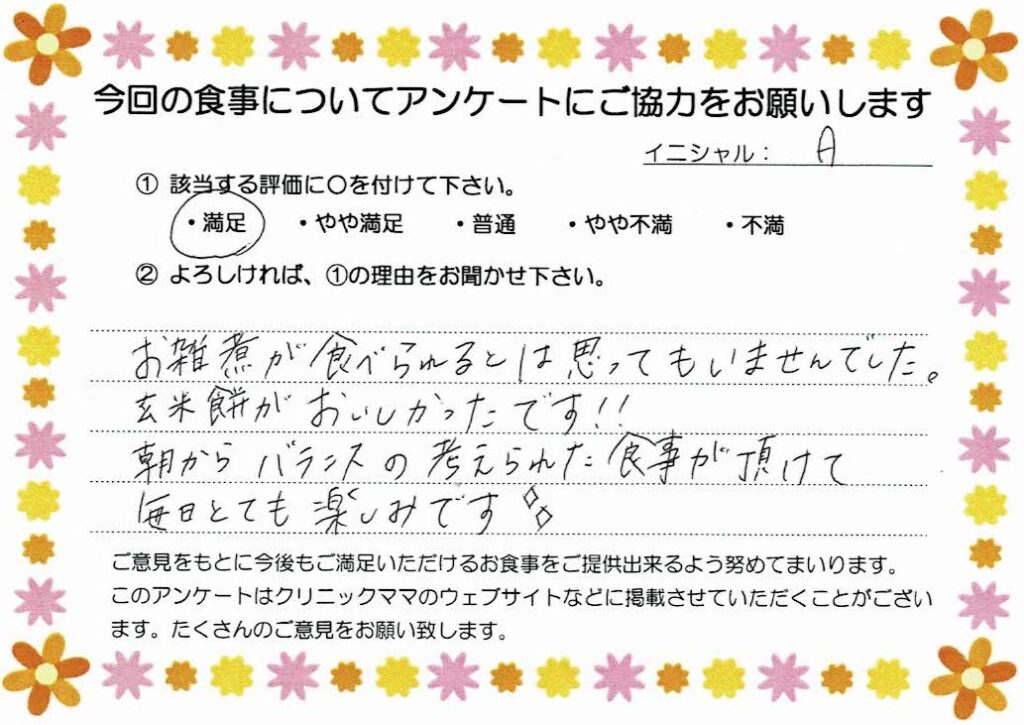 今回の食事についてアンケートにご協力をお願いします
イニシャル： A
① 該当する評価に○を付けて下さい。
・満足 ・やや満足 ・普通 ・やや不満 ・不満
② よろしければ、①の理由をお聞かせ下さい。
お雑煮が食べられるとは思ってもいませんでした。
玄米餅がおいしかったです!!
朝からバランスの考えられた食事が頂けて
毎日とても楽しみです
ご意見をもとに今後もご満足いただけるお食事をご提供出来るよう努めてまいります。
このアンケートはクリニックママのウェブサイトなどに掲載させていただくことがござい
ます。たくさんのご意見をお願い致します。